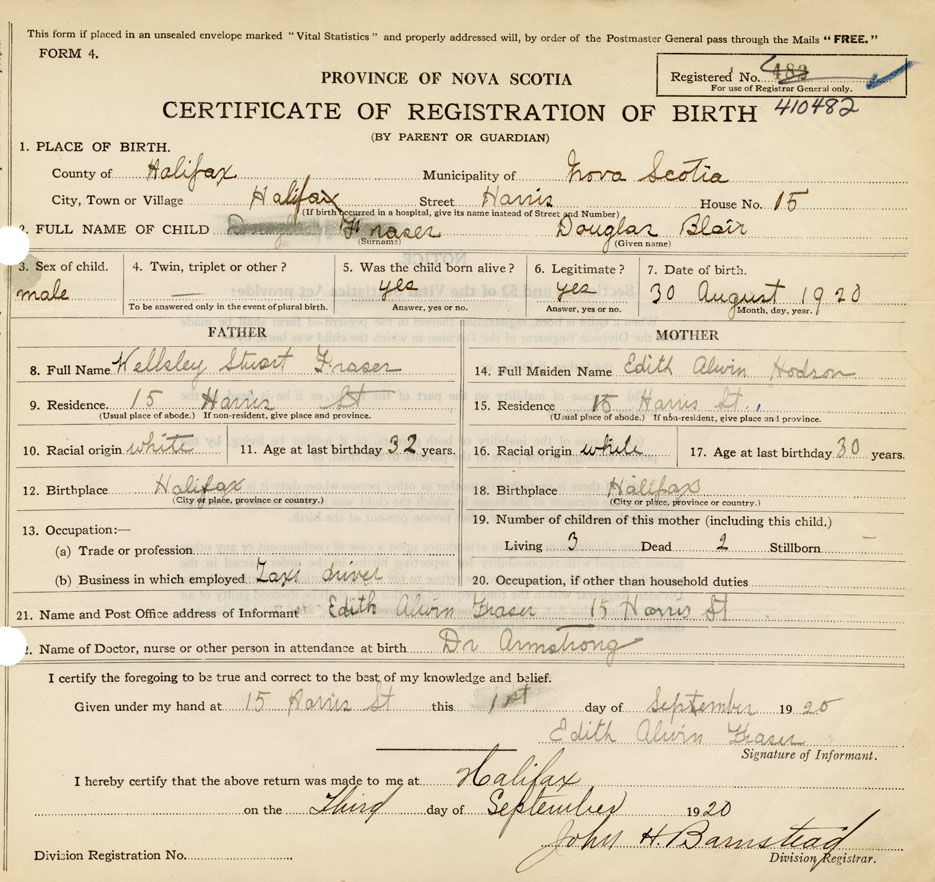 This form if placed in an unsealed envelope marked "Vital Statistics" and properly addressed will, by order of the Postmaster General pass through the Mails "FREE."
FORM 4.
PROVINCE OF NOVA SCOTIA
Registered No. 482
For use of Registrar General only.
CERTIFICATE OF REGISTRATION OF BIRTH 410482
(BY PARENT OR GUARDIAN)
1. PLACE OF BIRTH.
County of Halifax Municipality of Nova Scotia
City, Town or Village Halifax Street Harris House No. 15
(If birth occurred in a hospital, give its name instead of Street and Number)
2. FULL NAME OF CHILD Fraser Douglas Blair
(Surname) (Given name)
3. Sex of child. 4. Twin, triplet or other? 5. Was the child born alive? 6. Legitimate? 7. Date of birth.
male — yes yes 30 August 1920
To be answered only in the event of plural birth. Answer, yes or no. Answer, yes or no. Month, day, year.
FATHER MOTHER
8. Full Name Wellsley Stuart Fraser 14. Full Maiden Name Edith Alwin Hodson
9. Residence. 15 Harris St 15. Residence 15 Harris St.
(Usual place of abode.) If non-resident, give place and province. (Usual place of abode.) If non-resident, give place and province.
10. Racial origin white 11. Age at last birthday 32 years. 16. Racial origin white 17. Age at last birthday 30 years.
12. Birthplace Halifax 18. Birthplace Halifax
(City or place, province or country.) (City or place, province or country.)
13. Occupation:— 19. Number of children of this mother (including this child.)
(a) Trade or profession Living 3 Dead 2 Stillborn —
(b) Business in which employed Taxi driver 20. Occupation, if other than household duties
21. Name and Post Office address of Informant Edith Alwin Fraser 15 Harris St
2. Name of Doctor, nurse or other person in attendance at birth Dr Armstrong
I certify the foregoing to be true and correct to the best of my knowledge and belief.
Given under my hand at 15 Harris St this 1st day of September 1920
Edith Alwin Fraser
Signature of Informant.
I hereby certify that the above return was made to me at Halifax
on the Third day of September 1920
John H. Barnstead
Division Registration No. Division Registrar.